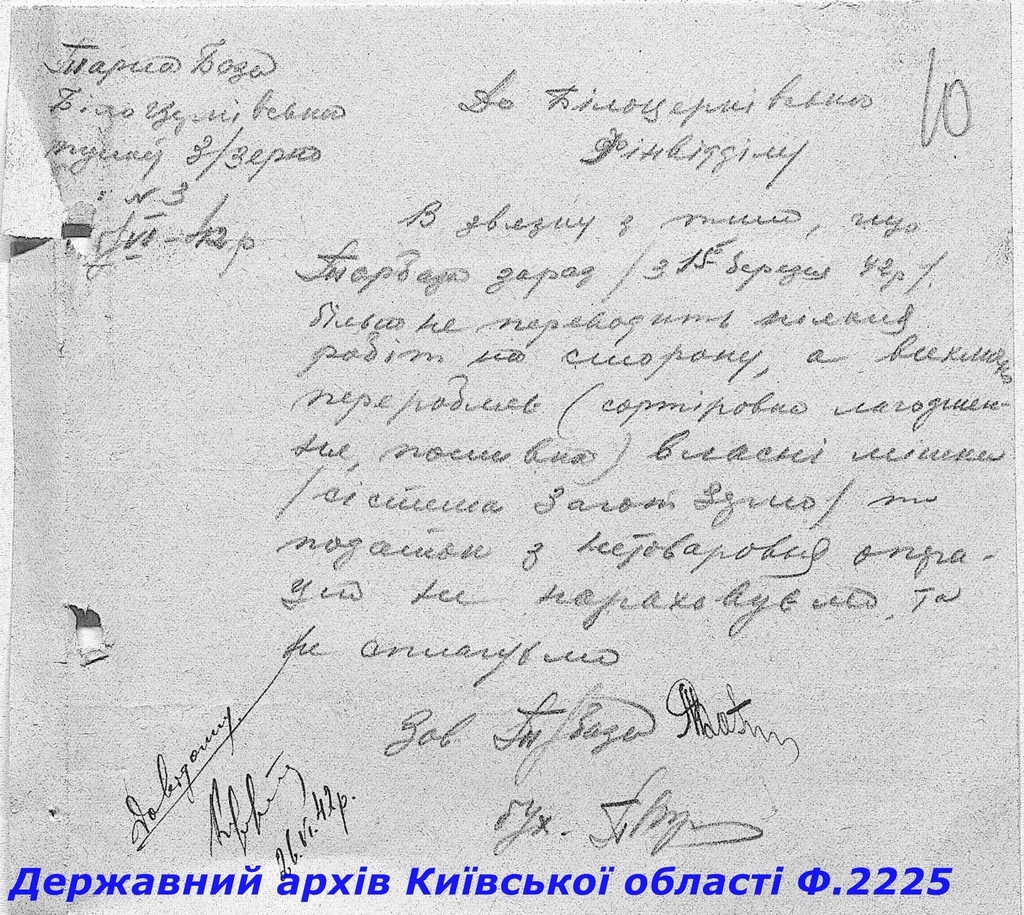 Тарна База
Білоцерківська
пункт З/зерно
№ 3
VI-42р
До Білоцерківського
Фінвідділу
10
В звязку з тим, що
Тарбаза зараз /з 15го березня 42р/.
більш не переводить ніяких
робіт на сторону, а виключно
переробляє (сортіровка лагоджен-
ня, пошивка) власні мішки
/сістема Загот Зерно/ то
податок з нетоварових опера-
цій не нараховуємо, та
не сплачуємо
Зав. Т/базы
бух.
До відому.
26.VI.42р.
Державний архів Київської області Ф.2225